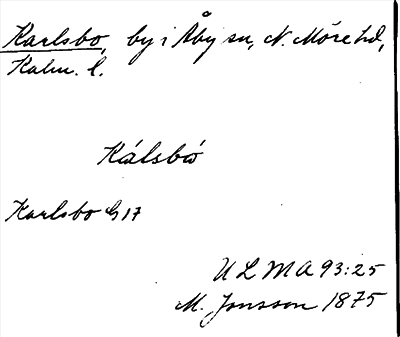 Karlsbo, by i Åby sn, N. Möre hd,
Kalm. l.
Kálsbó
Karlsbo G 17
ULMA 93:25
M. Jonsson 1875